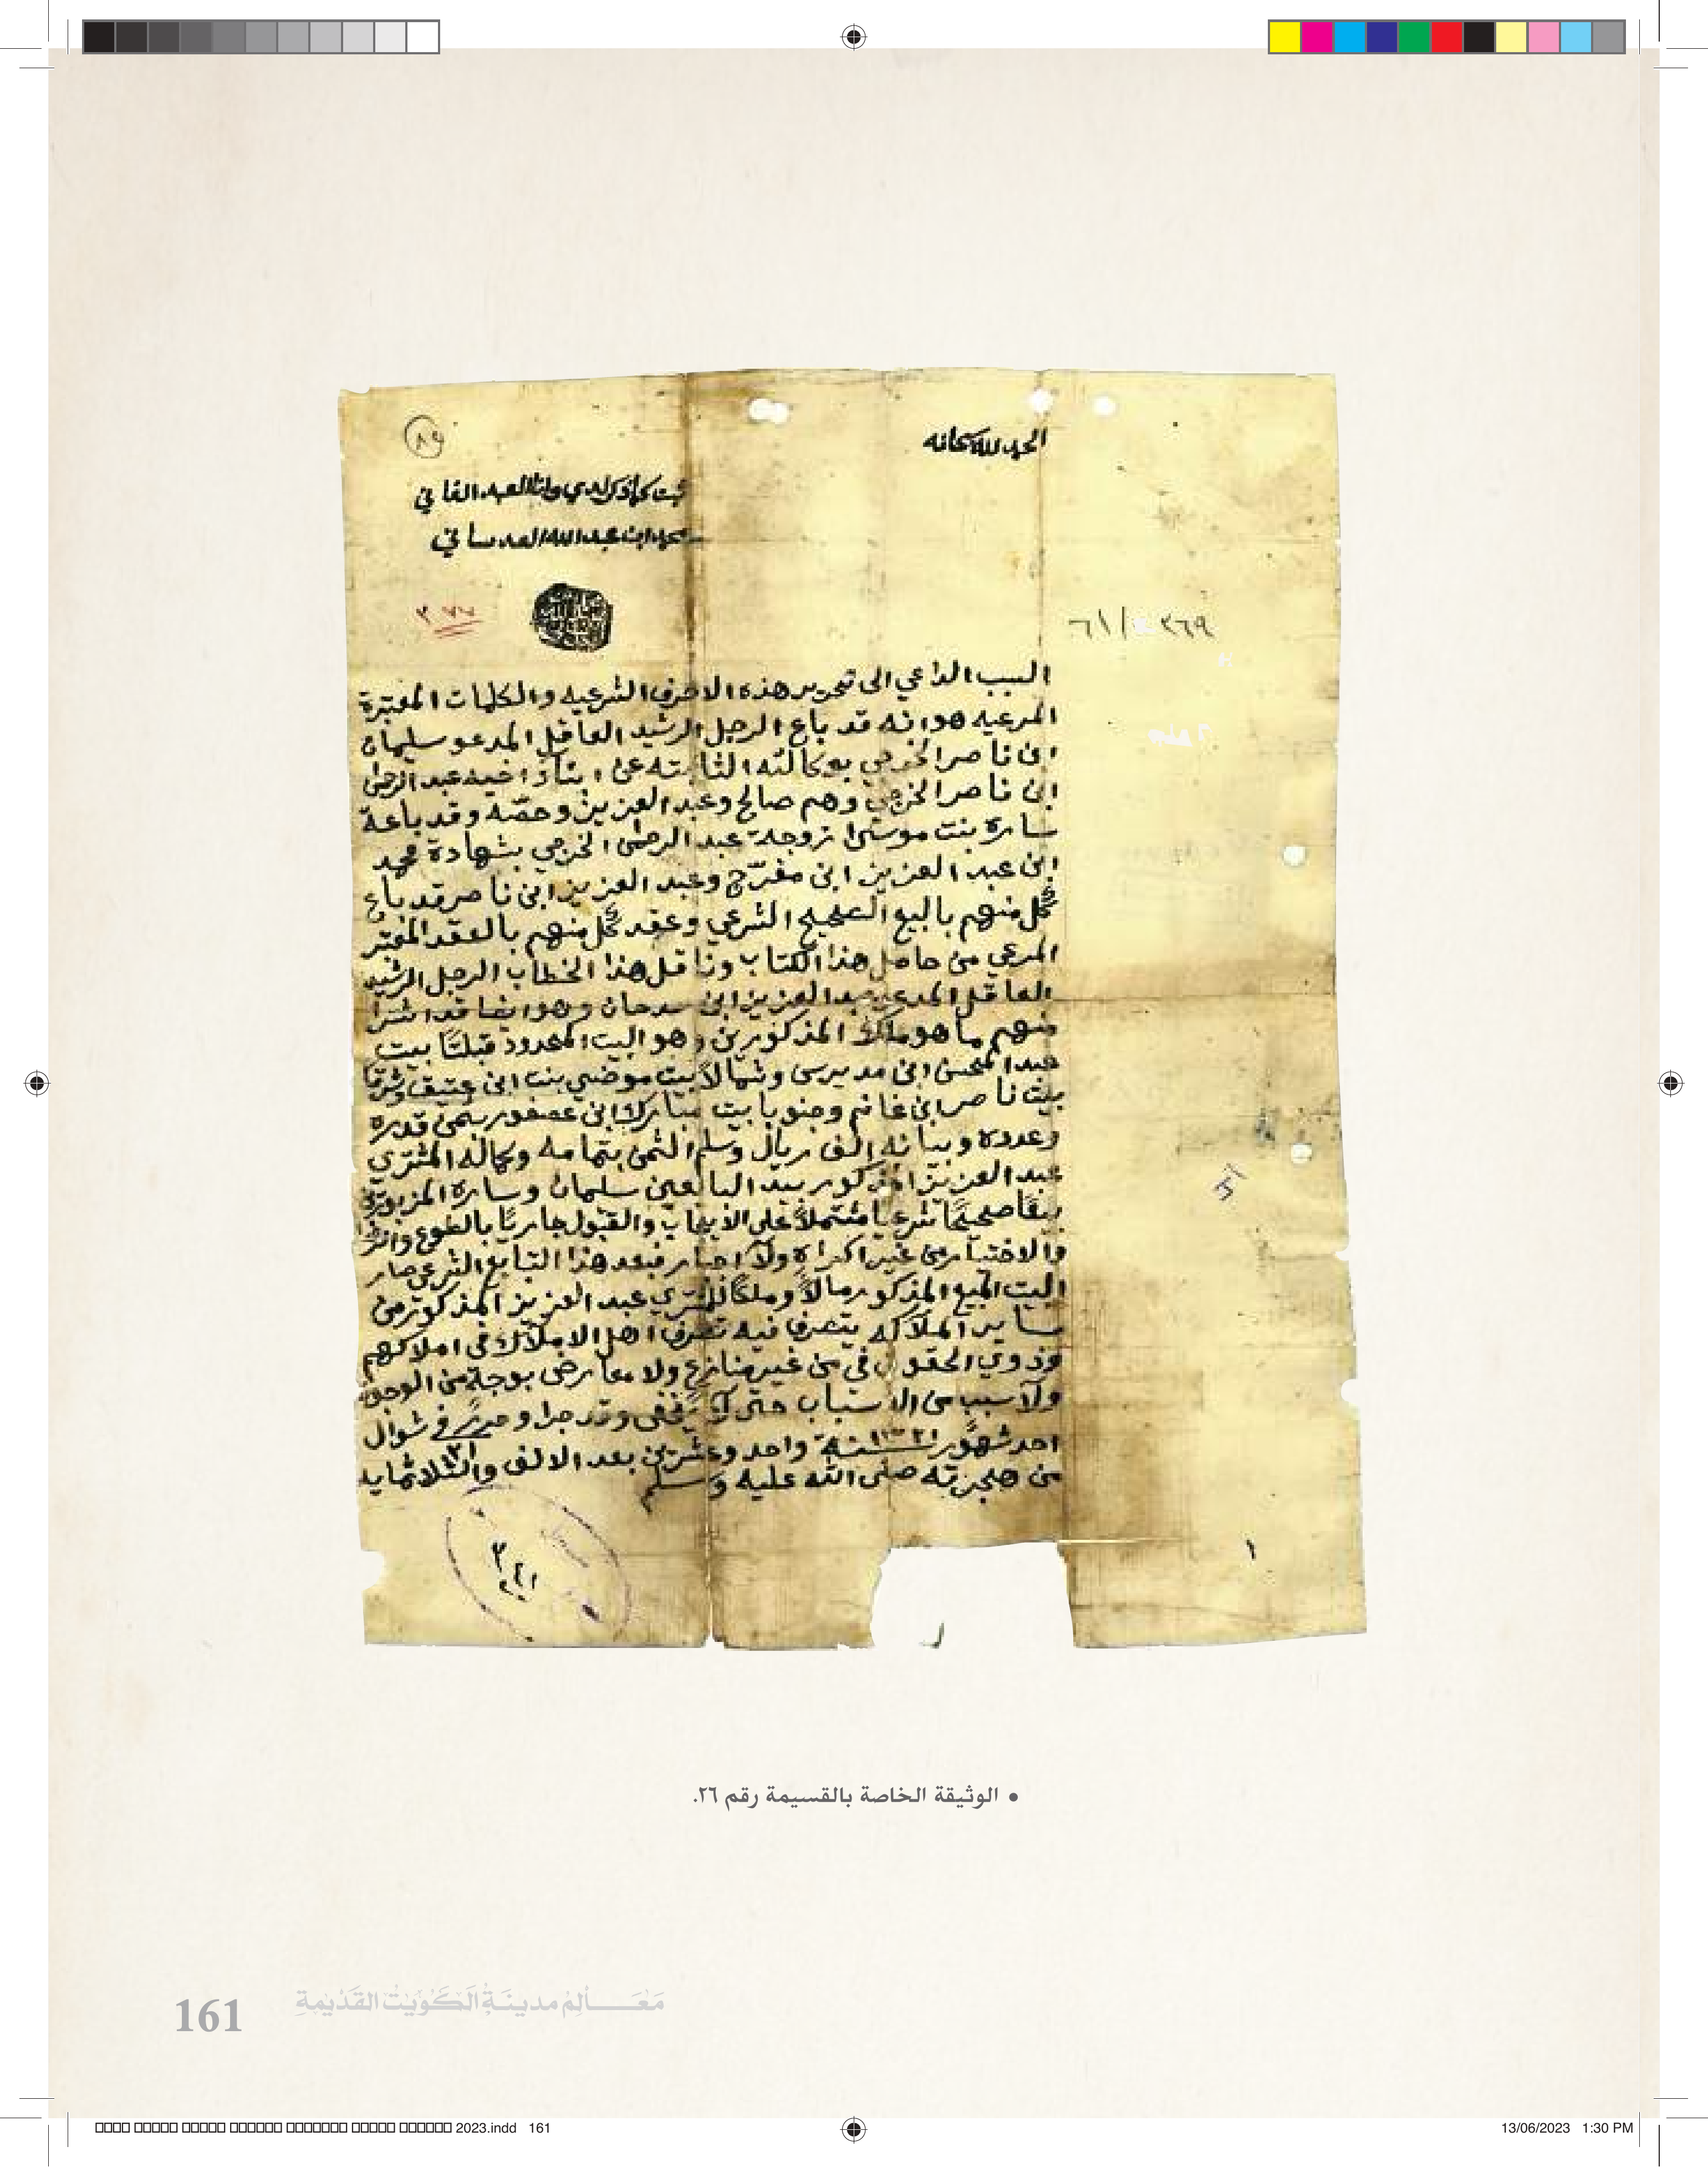 الحمد لله سبحانه
ثبت كما ذكر لدي وانا العبد الفاني
محمد ابن عبد الله العدساني
٣٦٩ /٦١
السبب الداعي الى تحرير هذه الاحرف الشرعيه والكلمات المعتبرة
المرعيه هو انه قد باع الرجل الرشيد العاقل المدعو سليمان
ابن ناصر الخرجي بوكالته الثابته عن ابناء اخيه عبد الرحمن
ابن ناصر الخرجي وهم صالح وعبد العزيز وحصه وقد باعة
ساره بنت موسى زوجة عبد الرحمن الخرجي بشهادة محمد
ابن عبد العزيز ابن مفرّج وعبد العزيز ابن ناصر قد باع
كل منهم بالبيع الصحيح الشرعي وعقد كل منهم بالعقد المعتبر
المرعي من حامل هذا الكتاب وناقل هذا الخطاب الرجل الرشيد
العاقل المدعو عبد العزيز ابن سرحان وهو ايضا قد اشترا
منهم ما هو ملك المذكورين وهو البيت المحدود قبلتًا بيت
عبد المحسن ابن مديرس وشمالاً بيت موضي بنت ابن عتيق وشرقا
بيت ناصر ابن غانم وجنوبا بيت مبارك ابن عصفور بثمن قدره
وعدده وبيانه الف ريال وسلم الثمن بتمامه وكماله المشتري
عبد العزيز المذكور بيد البائعين سليمان وساره المزبورين
بيعًا صحيحًا شرعيا مشتملاً على الايجاب والقبول جاريًا بالطوع والرضا
والاختيار من غير اكراه ولا اجبار فبعد هذا التبايع الشرعي صار
البيت المبيع المذكور مالاً وملكًا للمشتري عبد العزيز المذكور من
ساير املاكه يتصرف فيه تصرف اهل الاملاك في املاكهم
وذوي الحقوق في من غير منازع ولا معارض بوجة من الوجوه
ولا سبب من الاسباب حتى لا يخفى وقد جرا وحرر في شوال
احد شهور ١٣٢١ سنة واحد وعشرين بعد الالف والثلاثمايه
من هجرته صلى الله عليه وسلم
• الوثيقة الخاصة بالقسيمة رقم ٢٦.
161 مَعَـــالِمُ مدينَةِ الكُوَيْتُ القَدِيْمَةِ
2023.indd 161 13/06/2023 1:30 PM